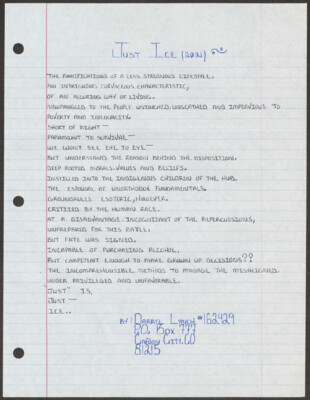 JUST ICE (2014)
THE RAMIFICATIONS OF A LESS STRENUOUS LIFESTYLE.
AN INTRIGUING CURVACEOUS CHARACTERISTIC,
OF AN ALLURING WAY OF LIVING.
NEWFANGLED TO THE PEOPLE UNTOUCHED, UNSCATHED AND IMPERVIOUS TO
POVERTY AND INEQUALITY.
SHORT OF RIGHT—
PARAMOUNT TO SURVIVAL—
WE WON'T SEE EYE TO EYE—
BUT UNDERSTAND THE REASON BEHIND THE DISPOSITION.
DEEP ROOTED MORALS, VALUES AND BELIEFS.
INSTILLED INTO THE INDIGENOUS CHILDREN OF THE HUB.
THE ESPOUSAL OF UNORTHODOX FUNDAMENTALS.
ESOTERIC, HOWEVER.
BY THE HUMAN RACE.
AT A DISADVANTAGE. INCOGNIZANT OF THE REPERCUSSIONS,
UNPREPARED FOR THIS
BUT FATE WAS SIGNED.
INCAPABLE OF PURCHASING ALCOHOL,
BUT COMPETENT ENOUGH TO MAKE GROWN UP DECISIONS??
THE INCOMPREHENSIBLE METHOD TO MANAGE THE
UNDER PRIVILEGED AND UNFAVORABLE.
"JUST" IS,
JUST—
ICE..
BY: DARRYL LYNCH #162429
P.O. BOX 777
CAÑON CITY, CO
81215